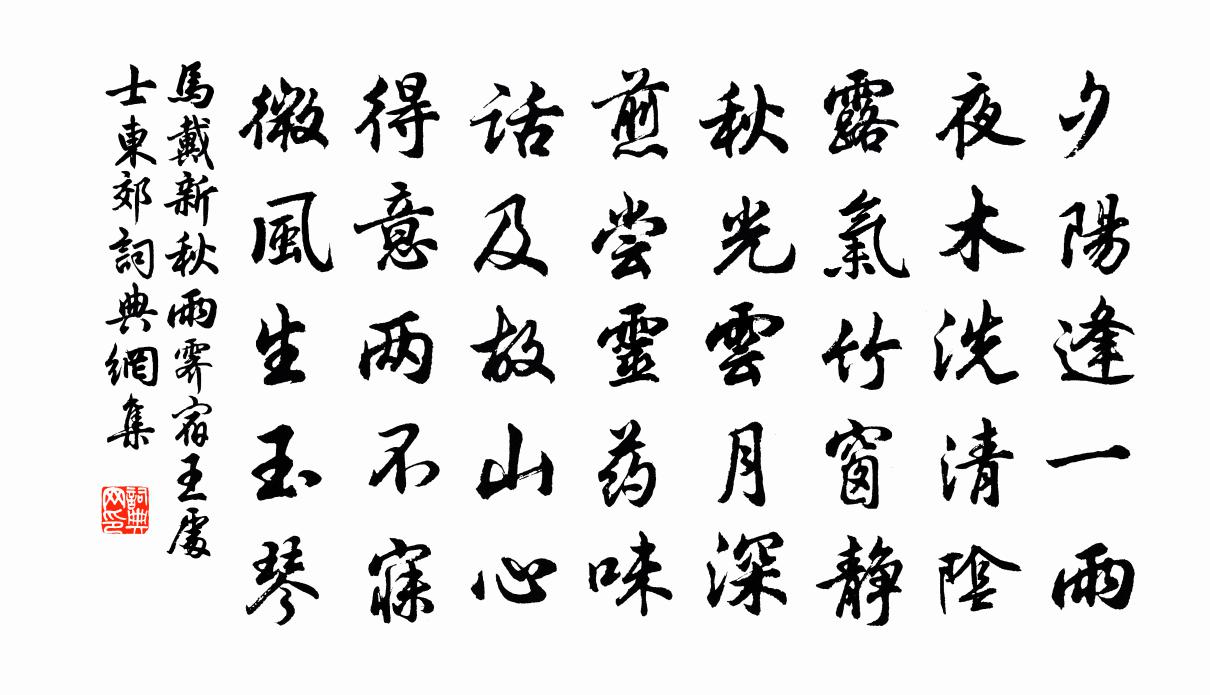 夕陽逢一雨
夜木洗清陰
露氣竹窗静
秋光雲月深
煎尝靈药味
话及故山心
得意两不寐
微風生玉琴
馬戴新秋雨霽宿王處
士東郊詞典網集
詞典网印